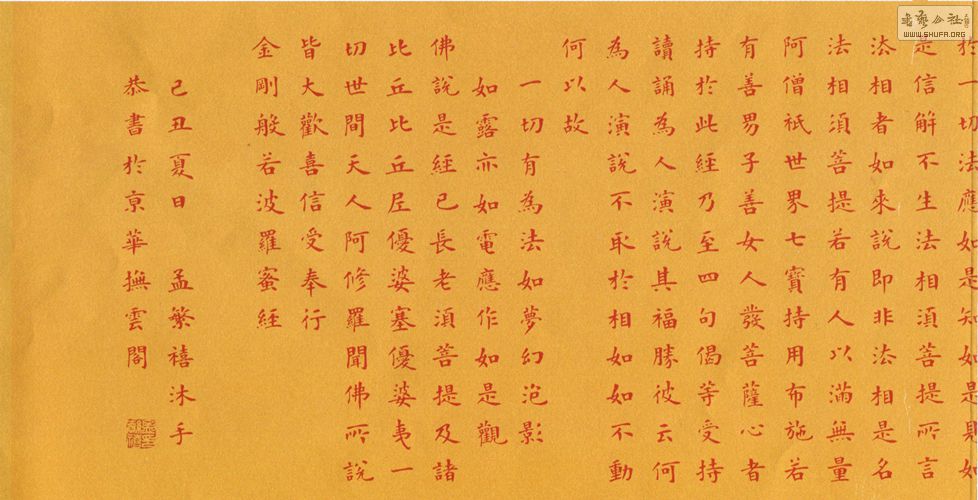 於一切法應如是知如是見如
是信解不生法相須菩提所言
法相者如來說即非法相是名
法相須菩提若有人以滿無量
阿僧祇世界七寶持用布施若
有善男子善女人發菩薩心者
持於此經乃至四句偈等受持
讀誦為人演說其福勝彼云何
為人演說不取於相如如不動
何以故
一切有為法如夢幻泡影
如露亦如電應作如是觀
佛說是經已長老須菩提及諸
比丘比丘尼優婆塞優婆夷一
切世間天人阿修羅聞佛所說
皆大歡喜信受奉行
金剛般若波羅蜜經
己丑夏日 孟繁禧沐手
恭書於亰華撫雲閣
WWW.SHUFA.ORG